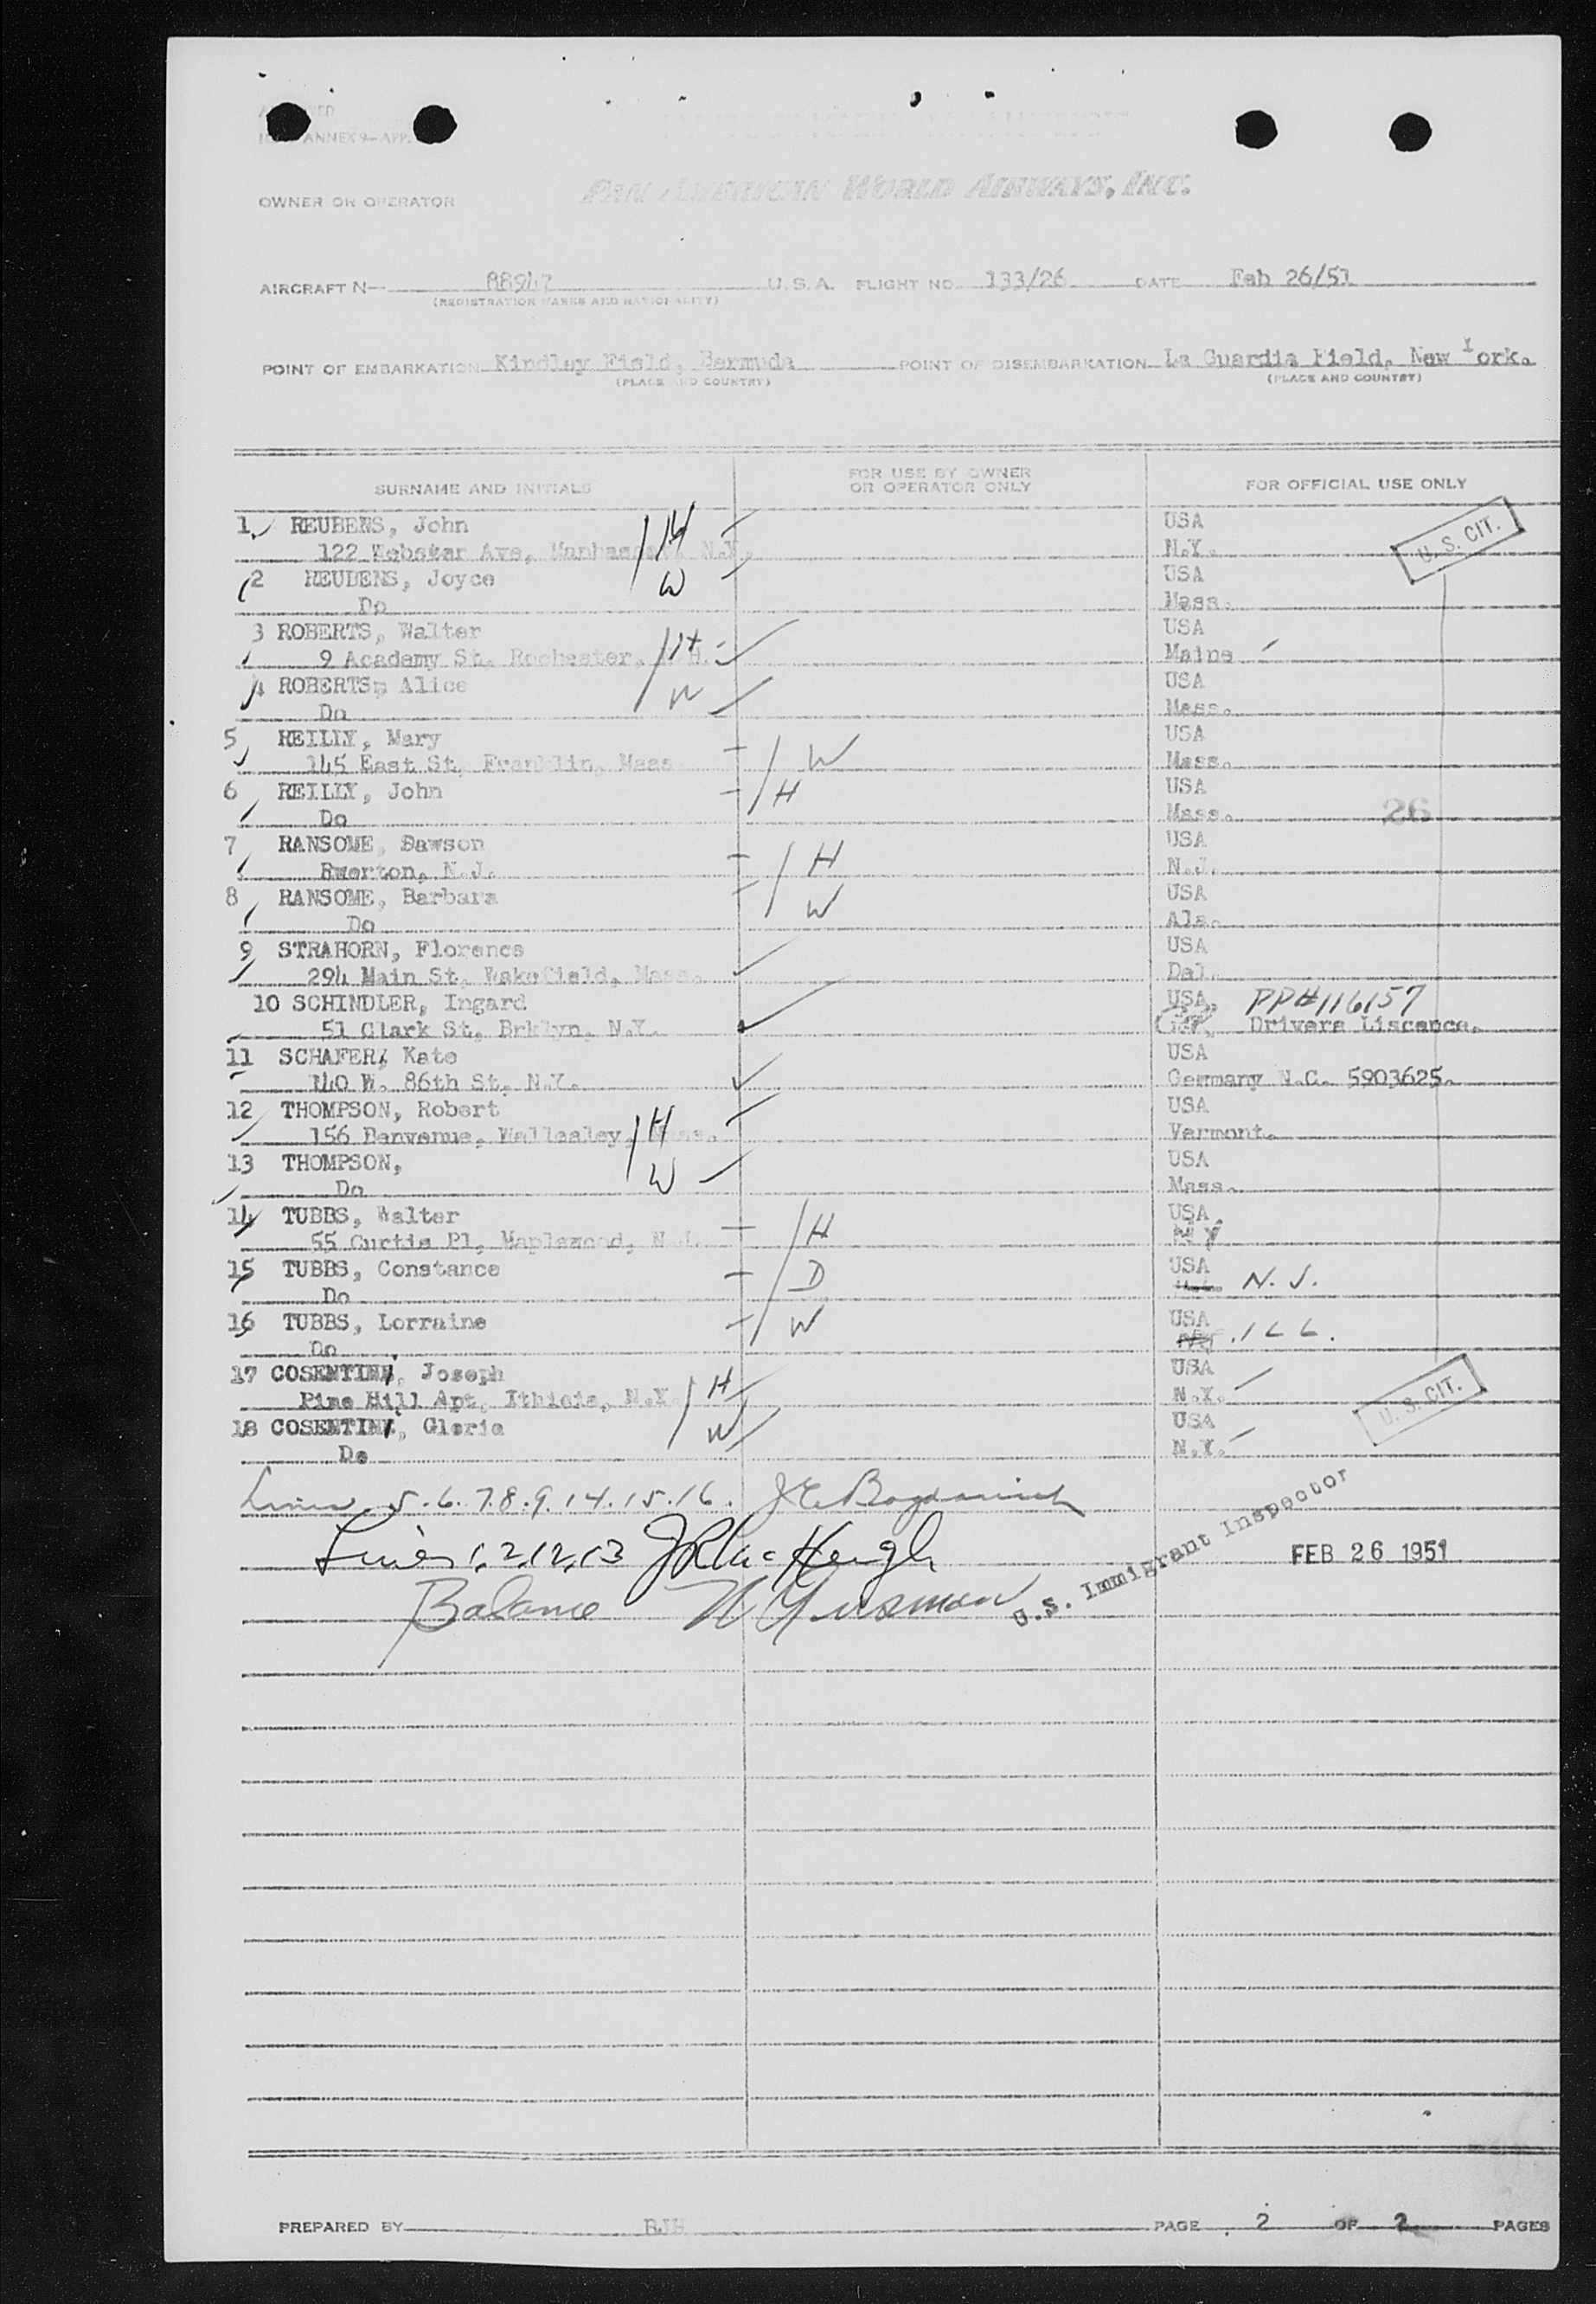 ANNEX 9-APP.
PAN AMERICAN WORLD AIRWAYS, INC.
OWNER OR OPERATOR
AIRCRAFT N- 88947 U.S.A. FLIGHT NO. 133/26 DATE Feb 26/51
(REGISTRATION MARKS AND NATIONALITY)
POINT OF EMBARKATION Kindley Field, Bermuda POINT OF DISEMBARKATION La Guardia Field, New York.
(PLACE AND COUNTRY) (PLACE AND COUNTRY)
SURNAME AND INITIALS FOR USE BY OWNER OR OPERATOR ONLY FOR OFFICIAL USE ONLY
1. REUBENS, John H USA
122 Webster Ave, Manhasset, N.Y. N.Y. U.S. CIT.
2 REUBENS, Joyce W USA
Do Mass.
3 ROBERTS, Walter H USA
9 Academy St. Rochester, N.H. Maine
4 ROBERTS, Alice W USA
Do Mass.
5 REILLY, Mary W USA
145 East St, Franklin, Mass Mass.
6 REILLY, John H USA
Do Mass. 26
7 RANSOME, Dawson H USA
N.J. N.J.
8 RANSOME, Barbara W USA
Do Ala.
9 STRAHORN, Florence USA
294 Main St, Wakefield, Mass. Del.
10 SCHINDLER, Ingard USA, PP#116157
51 Clark St, Brklyn, N.Y. Ger, Drivers Liscence.
11 SCHAFER, Kate USA
140 W. 86th St, N.Y. Germany N.C. 5903625.
12 THOMPSON, Robert H USA
156 Benvenue, Wellesley, Mass. Vermont.
13 THOMPSON, W USA
Do Mass.
14 TUBBS, Walter H USA.
55 Curtis Pl, Maplewood, N.J. N Y
15 TUBBS, Constance D USA
Do N.J.
16 TUBBS, Lorraine W USA
Do ILL.
17 COSENTINI, Joseph H USA
Pine Hill Apt, Ithicia, N.Y. N.Y. U.S. CIT.
18 COSENTINI, Gloria W USA
Do N.Y.
Lines 5.6.7.8.9.14.15.16.
Lines 1,2,12,13 FEB 26 1951
Balance U.S. Immigrant Inspector
PREPARED BY RJH PAGE 2 OF 2 PAGES